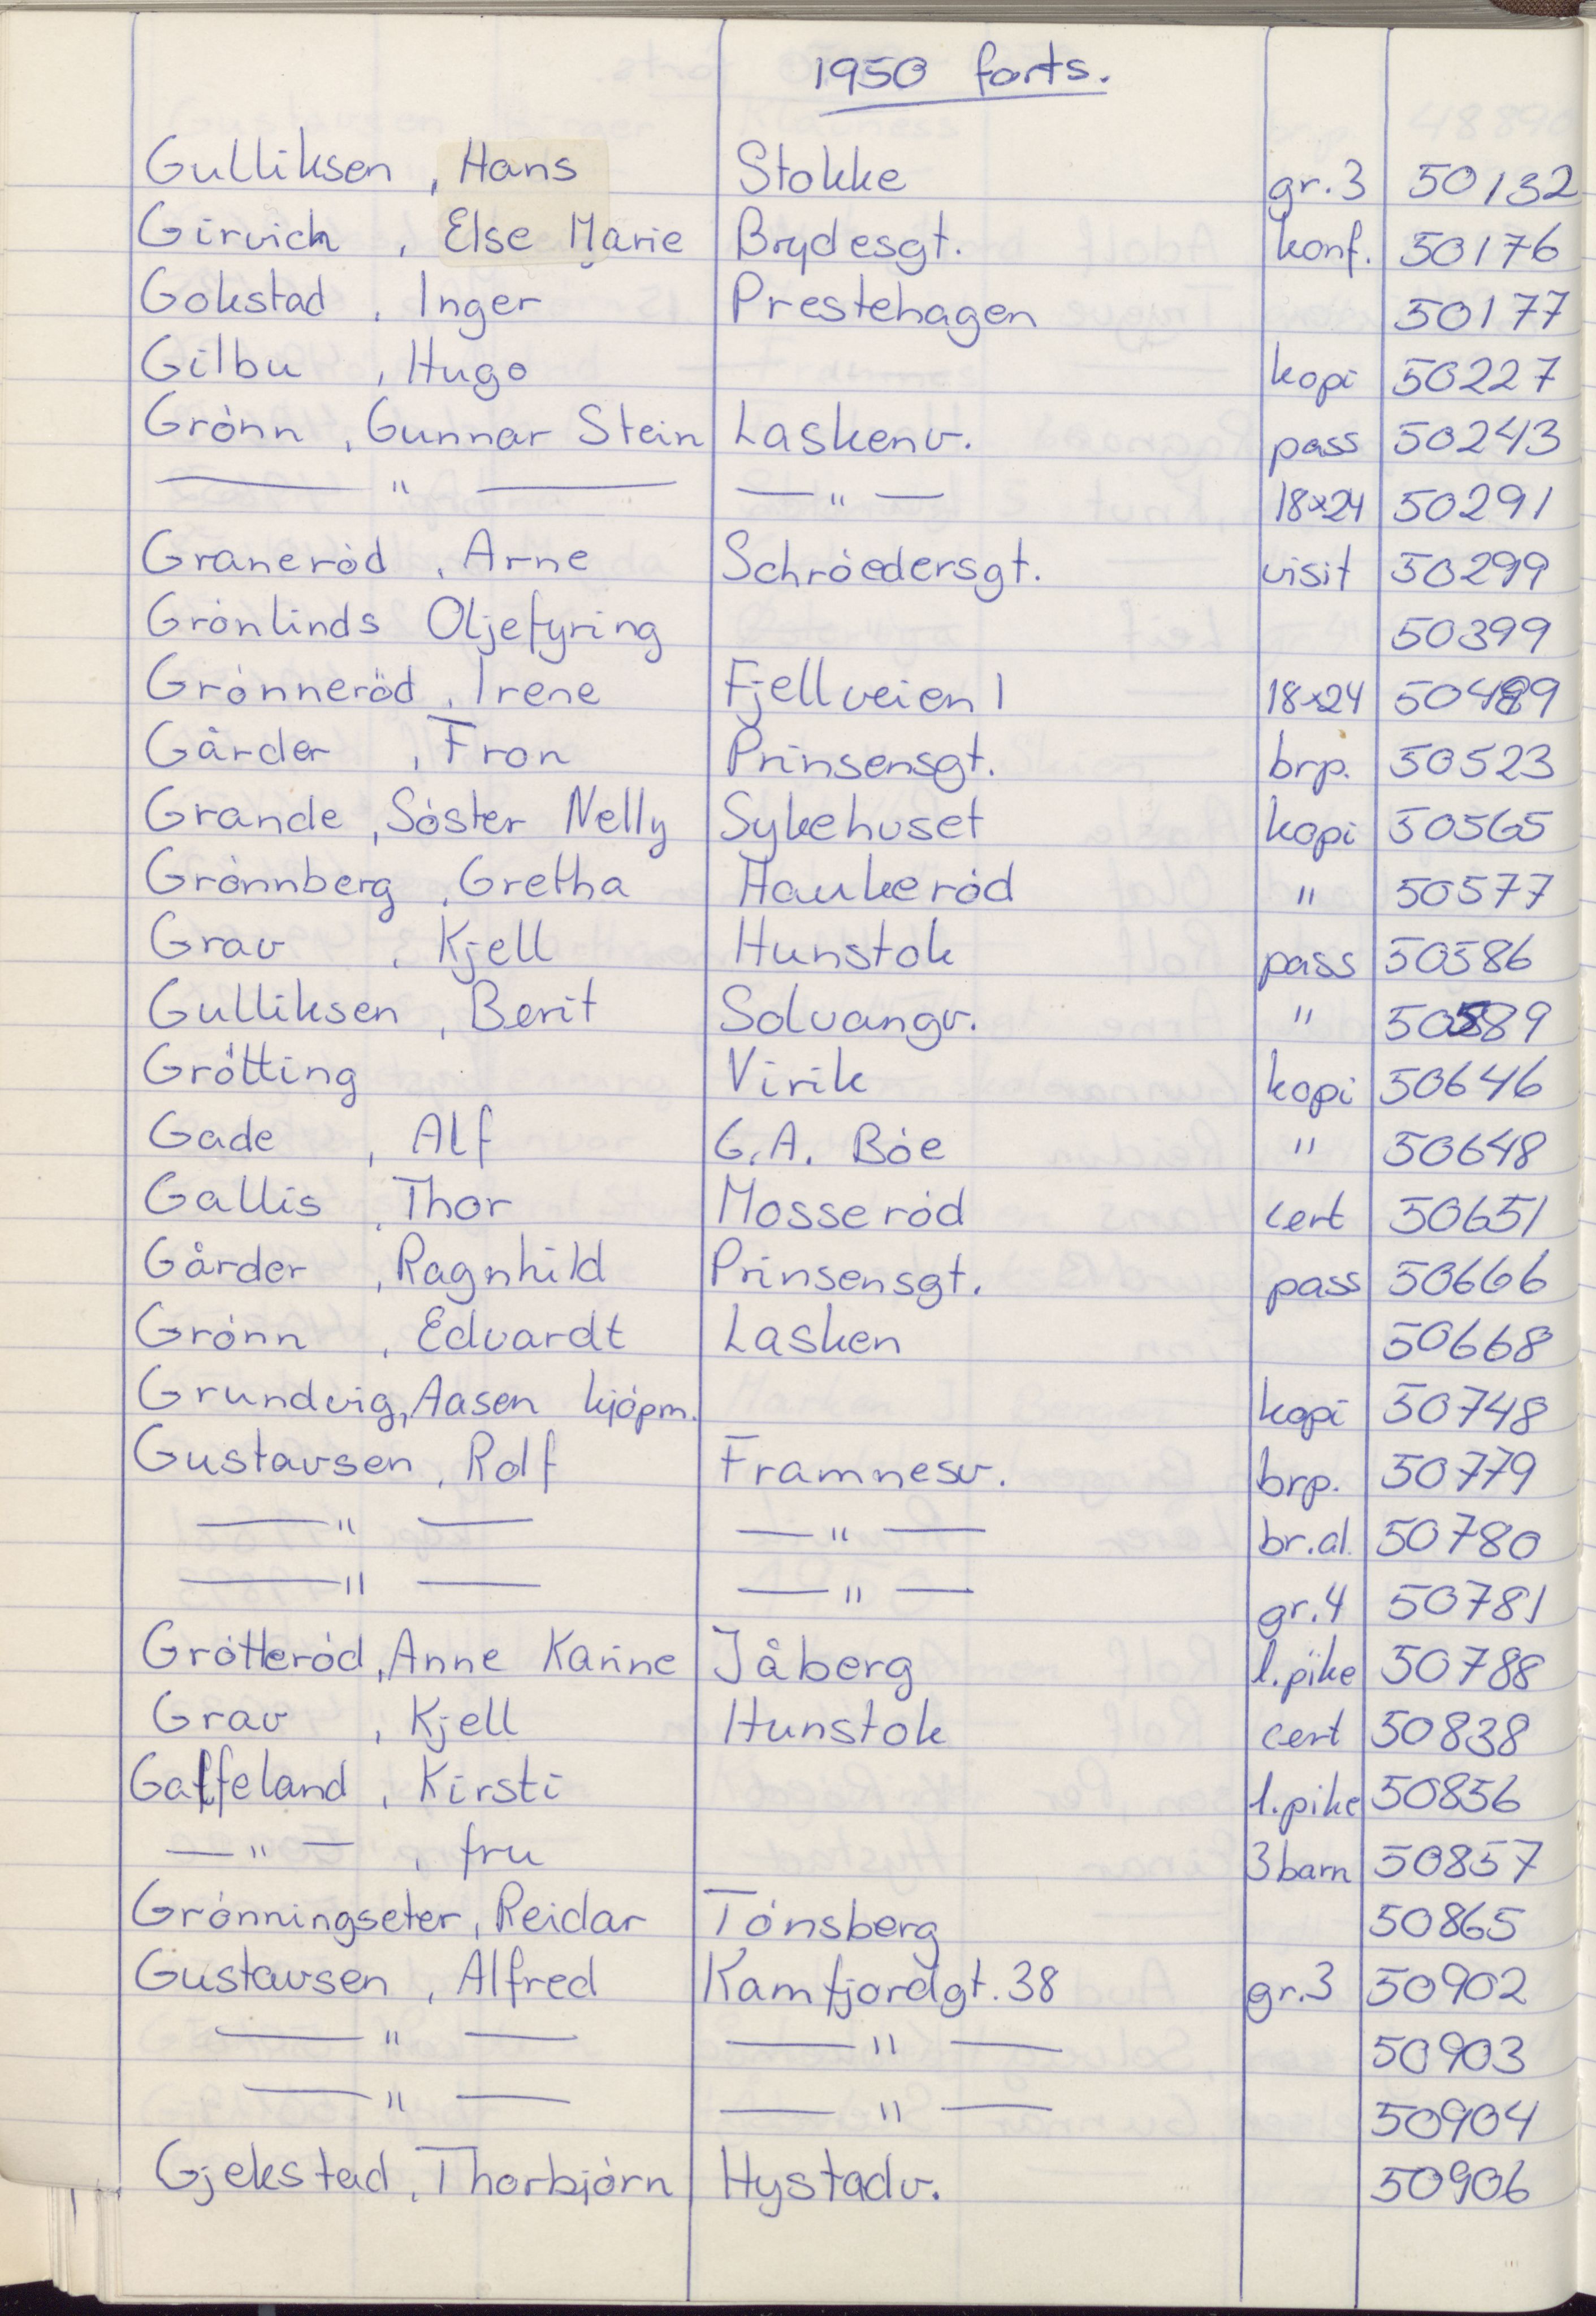 1950 forts.
Gulliksen , Hans Stokke gr.3 50132
Girvich , Else Marie Brydesgt. konf. 50176
Gokstad , Inger Prestehagen 50177
Gilbu , Hugo kopi 50227
Grónn , Gunnar Stein Laskenv. pass 50243
— " — — " — 18x24 50291
Graneród , Arne Schróedersgt. visit 50299
Grónlinds Oljefyring 50399
Grónneröd , Irene Fjellveien 1 18x24 50489
Gårder , Fron Prinsensgt. brp. 50523
Grande , Sóster Nelly Sykehuset kopi 50565
Grónnberg , Gretha Haukeród " 50577
Grav , Kjell Hunstok pass 50586
Gulliksen , Berit Solvangv. " 50589
Grótting Virik kopi 50646
Gade , Alf G.A. Bóe " 50648
Gallis , Thor Mosseród cert 50651
Gårder , Ragnhild Prinsensgt. pass 50666
Grónn , Edvardt Lasken 50668
Grundvig, Aasen kjópm. kopi 50748
Gustavsen , Rolf Framnesv. brp. 50779
— " — — " — br.al. 50780
— " — — " — gr.4 50781
Grótteród , Anne Karine Jåberg l.pike 50788
Grav , Kjell Hunstok cert 50838
Gaffeland , Kirsti l.pike 50856
— " — , fru 3 barn 50857
Grónningseter , Reidar Tónsberg 50865
Gustavsen , Alfred Kamfjordgt. 38 gr.3 50902
— " — — " — 50903
— " — — " — 50904
Gjekstad , Thorbjórn Hystadv. 50906